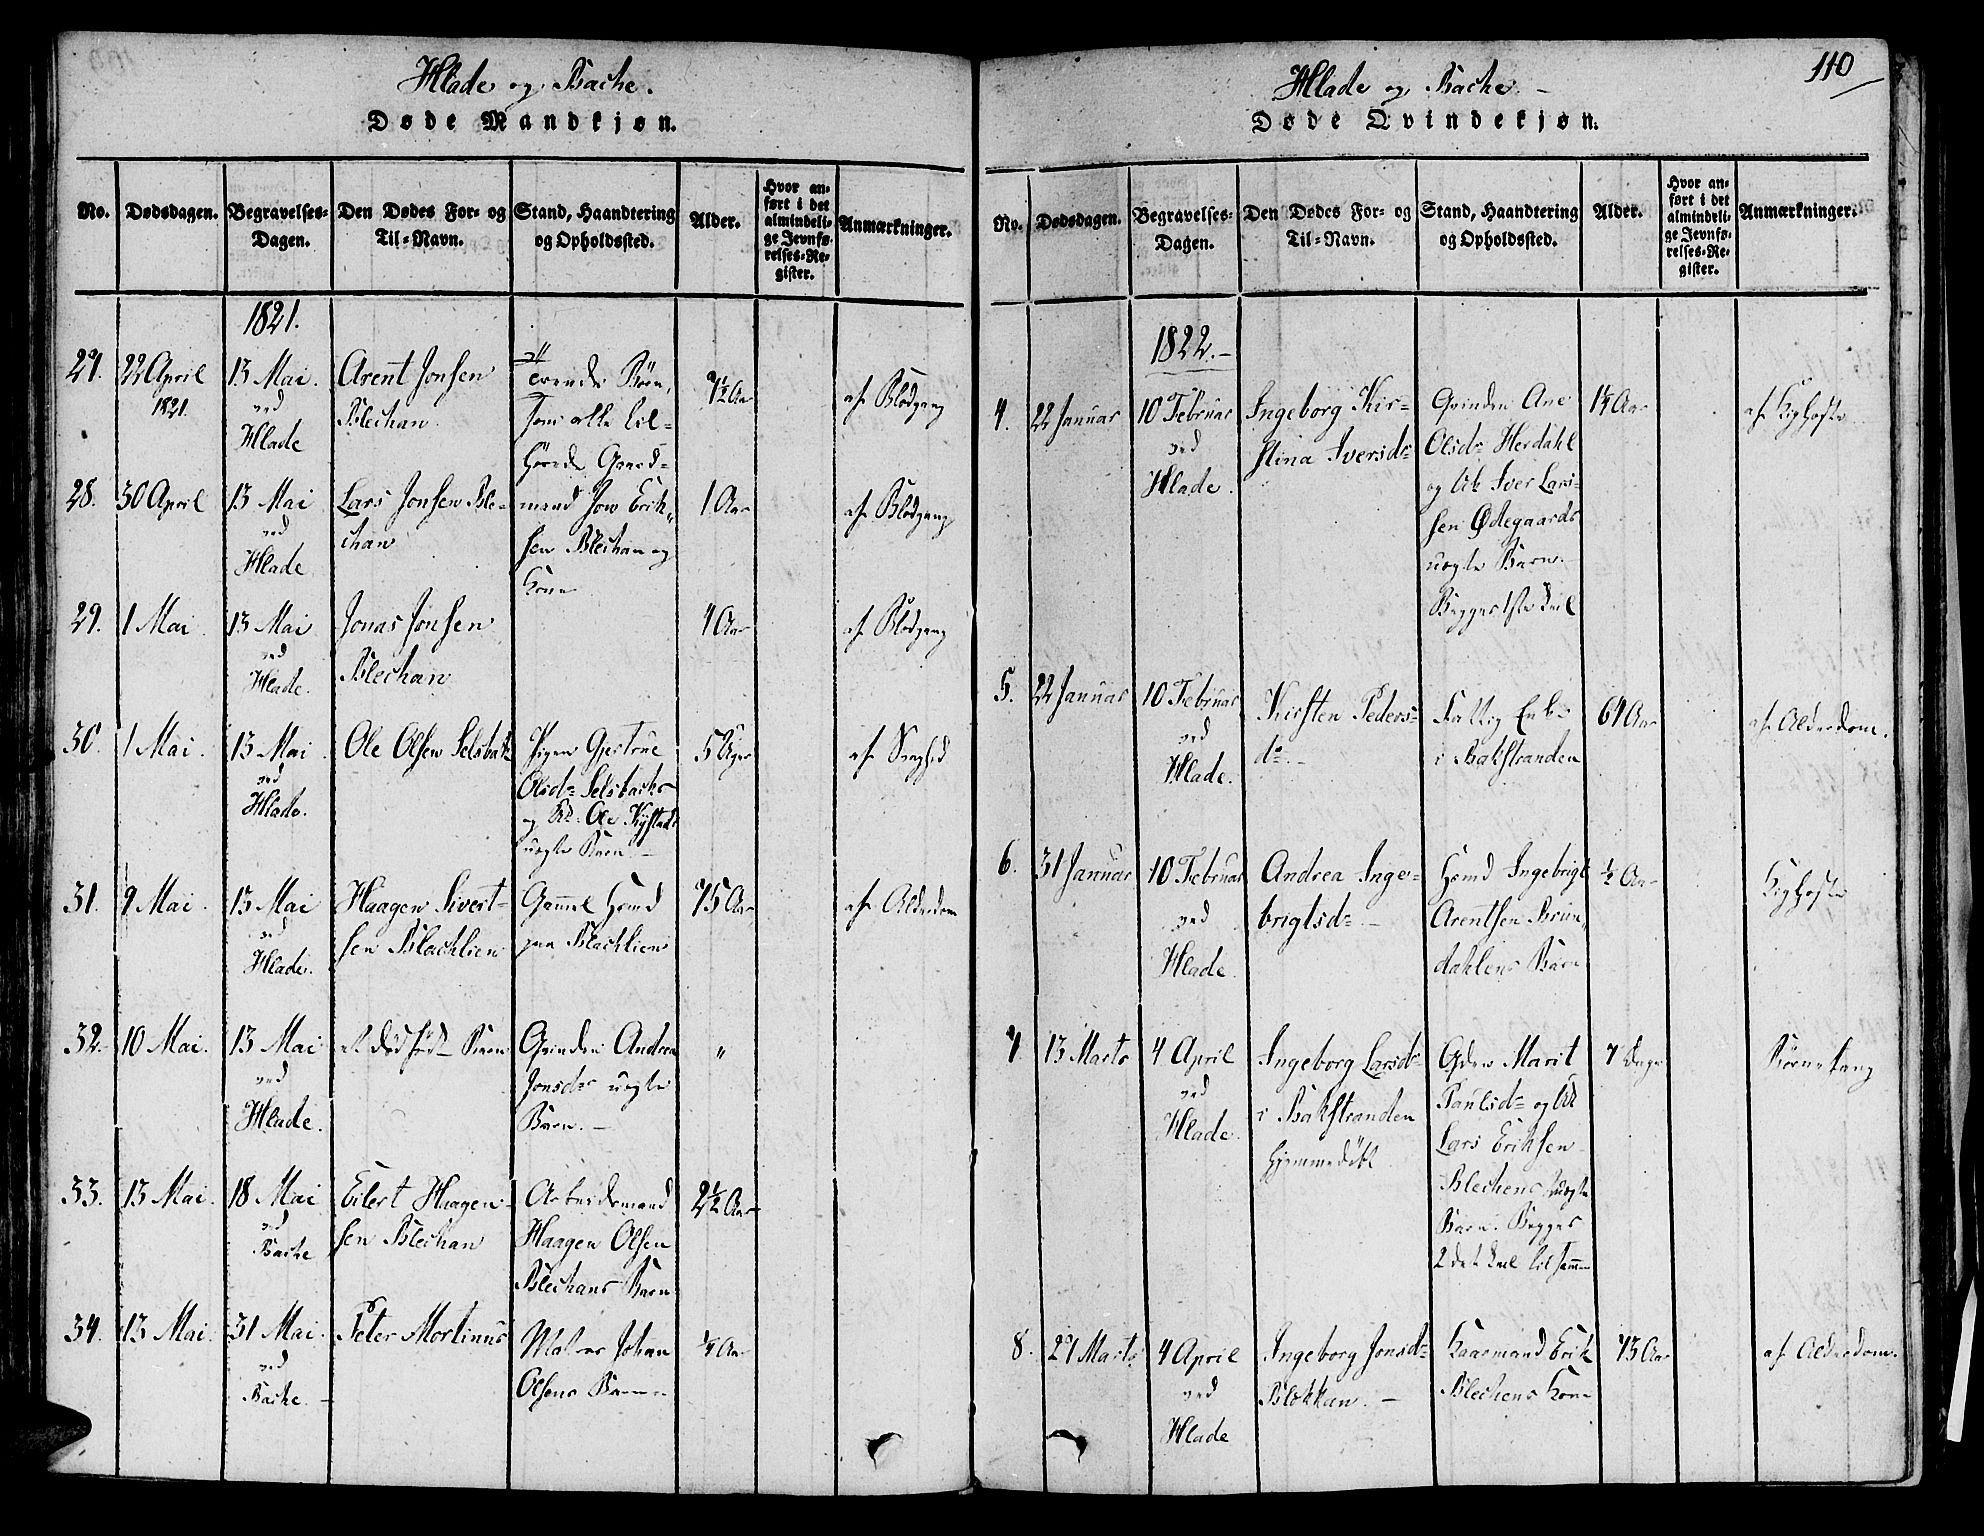 Hlade og Bache.
Døde Mandkjøn.
No.
Dødsdagen.
Begravelses-
Dagen.
Den Dødes For- og
Til-Navn.
Stand, Haandtering
og Opholdssted.
Alder.
Hvor an-
ført i det
almindeli-
ge Jevnfø-
relses-Re-
gister.
Anmærkninger.
1821.
27.
22 April
1821.
13 Mai.
ved
Hlade
Arent Jonsen
Blechan.
Børn,
som alle til-
hørende Gaard-
mand Jon Erik-
sen Blechan og
Kone
7½ Aar
af Blodgang
28.
30 April
13 Mai
ved
Hlade
Lars Jonsen Ble-
chan
1 Aar
af Blodgang
29.
1 Mai.
13 Mai
ved
Hlade.
Jonas Jonsen
Blechan
4 Aar
af Blodgang
30.
1 Mai.
13 Mai
ved
Hlade.
Ole Olsen Selsbak
Pigen Gjertrue
Olsdr Selsbachs
og Ole Kystads
uægte Barn.
5 Uger
af Svaghed
31.
9 Mai.
13 Mai
ved
Hlade.
Haagen Sivert-
sen Blachlien
Gammel Huusmd
paa Blachlien
75 Aar
af Alderdom
32.
10 Mai.
13 Mai
ved
Hlade.
et dødfødt Barn
Qvinden Andrea
Jonsdr uægte
Barn. -
"
33.
13 Mai.
18 Mai
ved
Bache
Eilert Haagen-
sen Blechan
Arbeidsmand
Haagen Olsen
Blechans Barn
2½ Aar
34.
13 Mai.
31 Mai.
ved
Bache. -
Peter Mortinus
Johan
Olsens Barn
¼ Aar
110
Hlade og Bache. -
Døde Qvindekjøn.
No.
Dødsdagen.
Begravelses-
Dagen.
Den Dødes For- og
Til-Navn.
Stand, Haandtering
og Opholdssted.
Alder.
Hvor an-
ført i det
almindeli-
ge Jevnfø-
relses-Re-
gister.
Anmærkninger.
1822. -
4.
22 Januar
10 Februar
ved
Hlade.
Ingeborg Kir-
stina Iversdr
Qvinden Ane
Olsdr Herdahl
og Uk Iver Lars-
sen Ødegaards
uægte Barn.
Begges 1ste Leil
1¼ Aar
af Kighoste
5.
22 Januar
10 Februar
ved
Hlade.
Kirsten Peders-
dr. -
Fattig Enke
i Bakstranden
64 Aar
af Alderdom.
6.
31 Januar
10 Februar
ved
Hlade.
Andrea Inge-
brigtsdr. -
Huusmd Ingebrigt
Arentsen Brun-
dahlens Barn
½ Aar
Kighoste
7.
13 Marts
4 April
ved
Hlade.
Ingeborg Larsdr
i Bakstranden
hjemmedøbt
Qvden Marit
Paulsdr og Uk
Lars Eriksen
Blechens uægte
Barn. Begges
2det Leil tilsamm
7 Dage
8.
27 Marts
4 April
ved
Hlade
Ingeborg Jonsdr
Blekkan. -
Erik
Blechens Kone
73 Aar
af Alderdom.